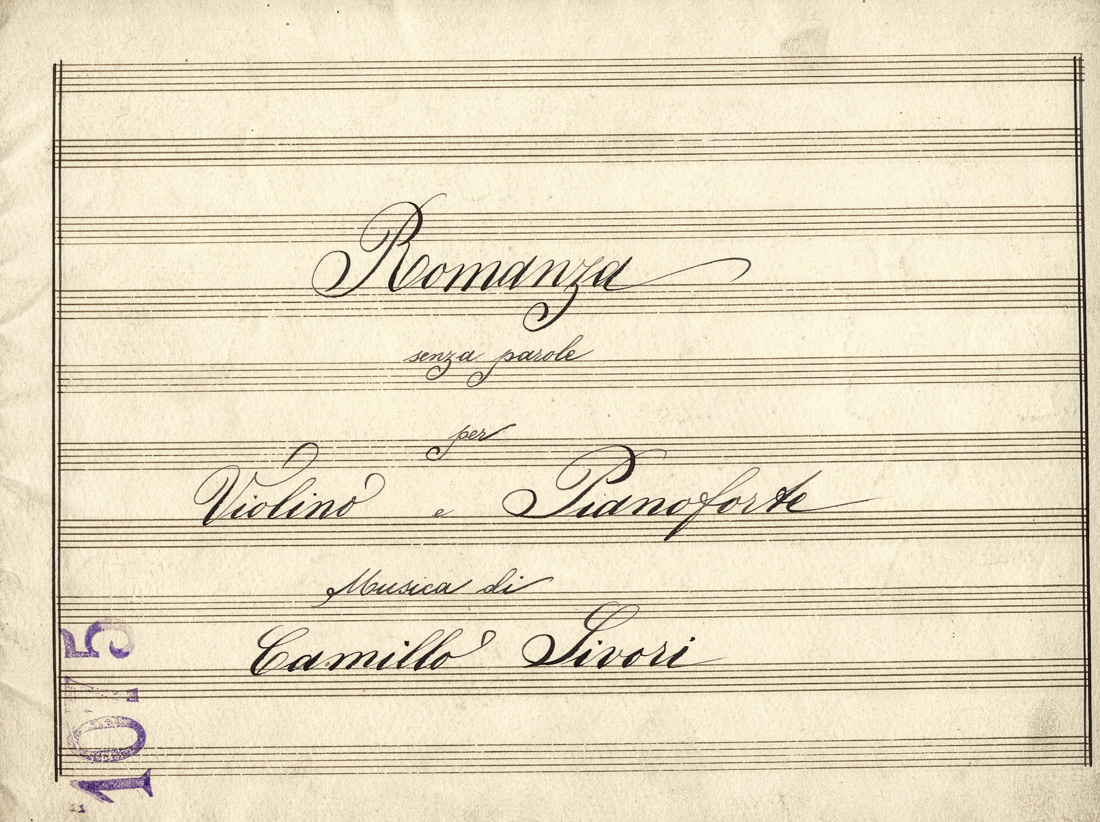 Romanza
senza parole
per
Violino e Pianoforte
Musica di
Camillo Sivori